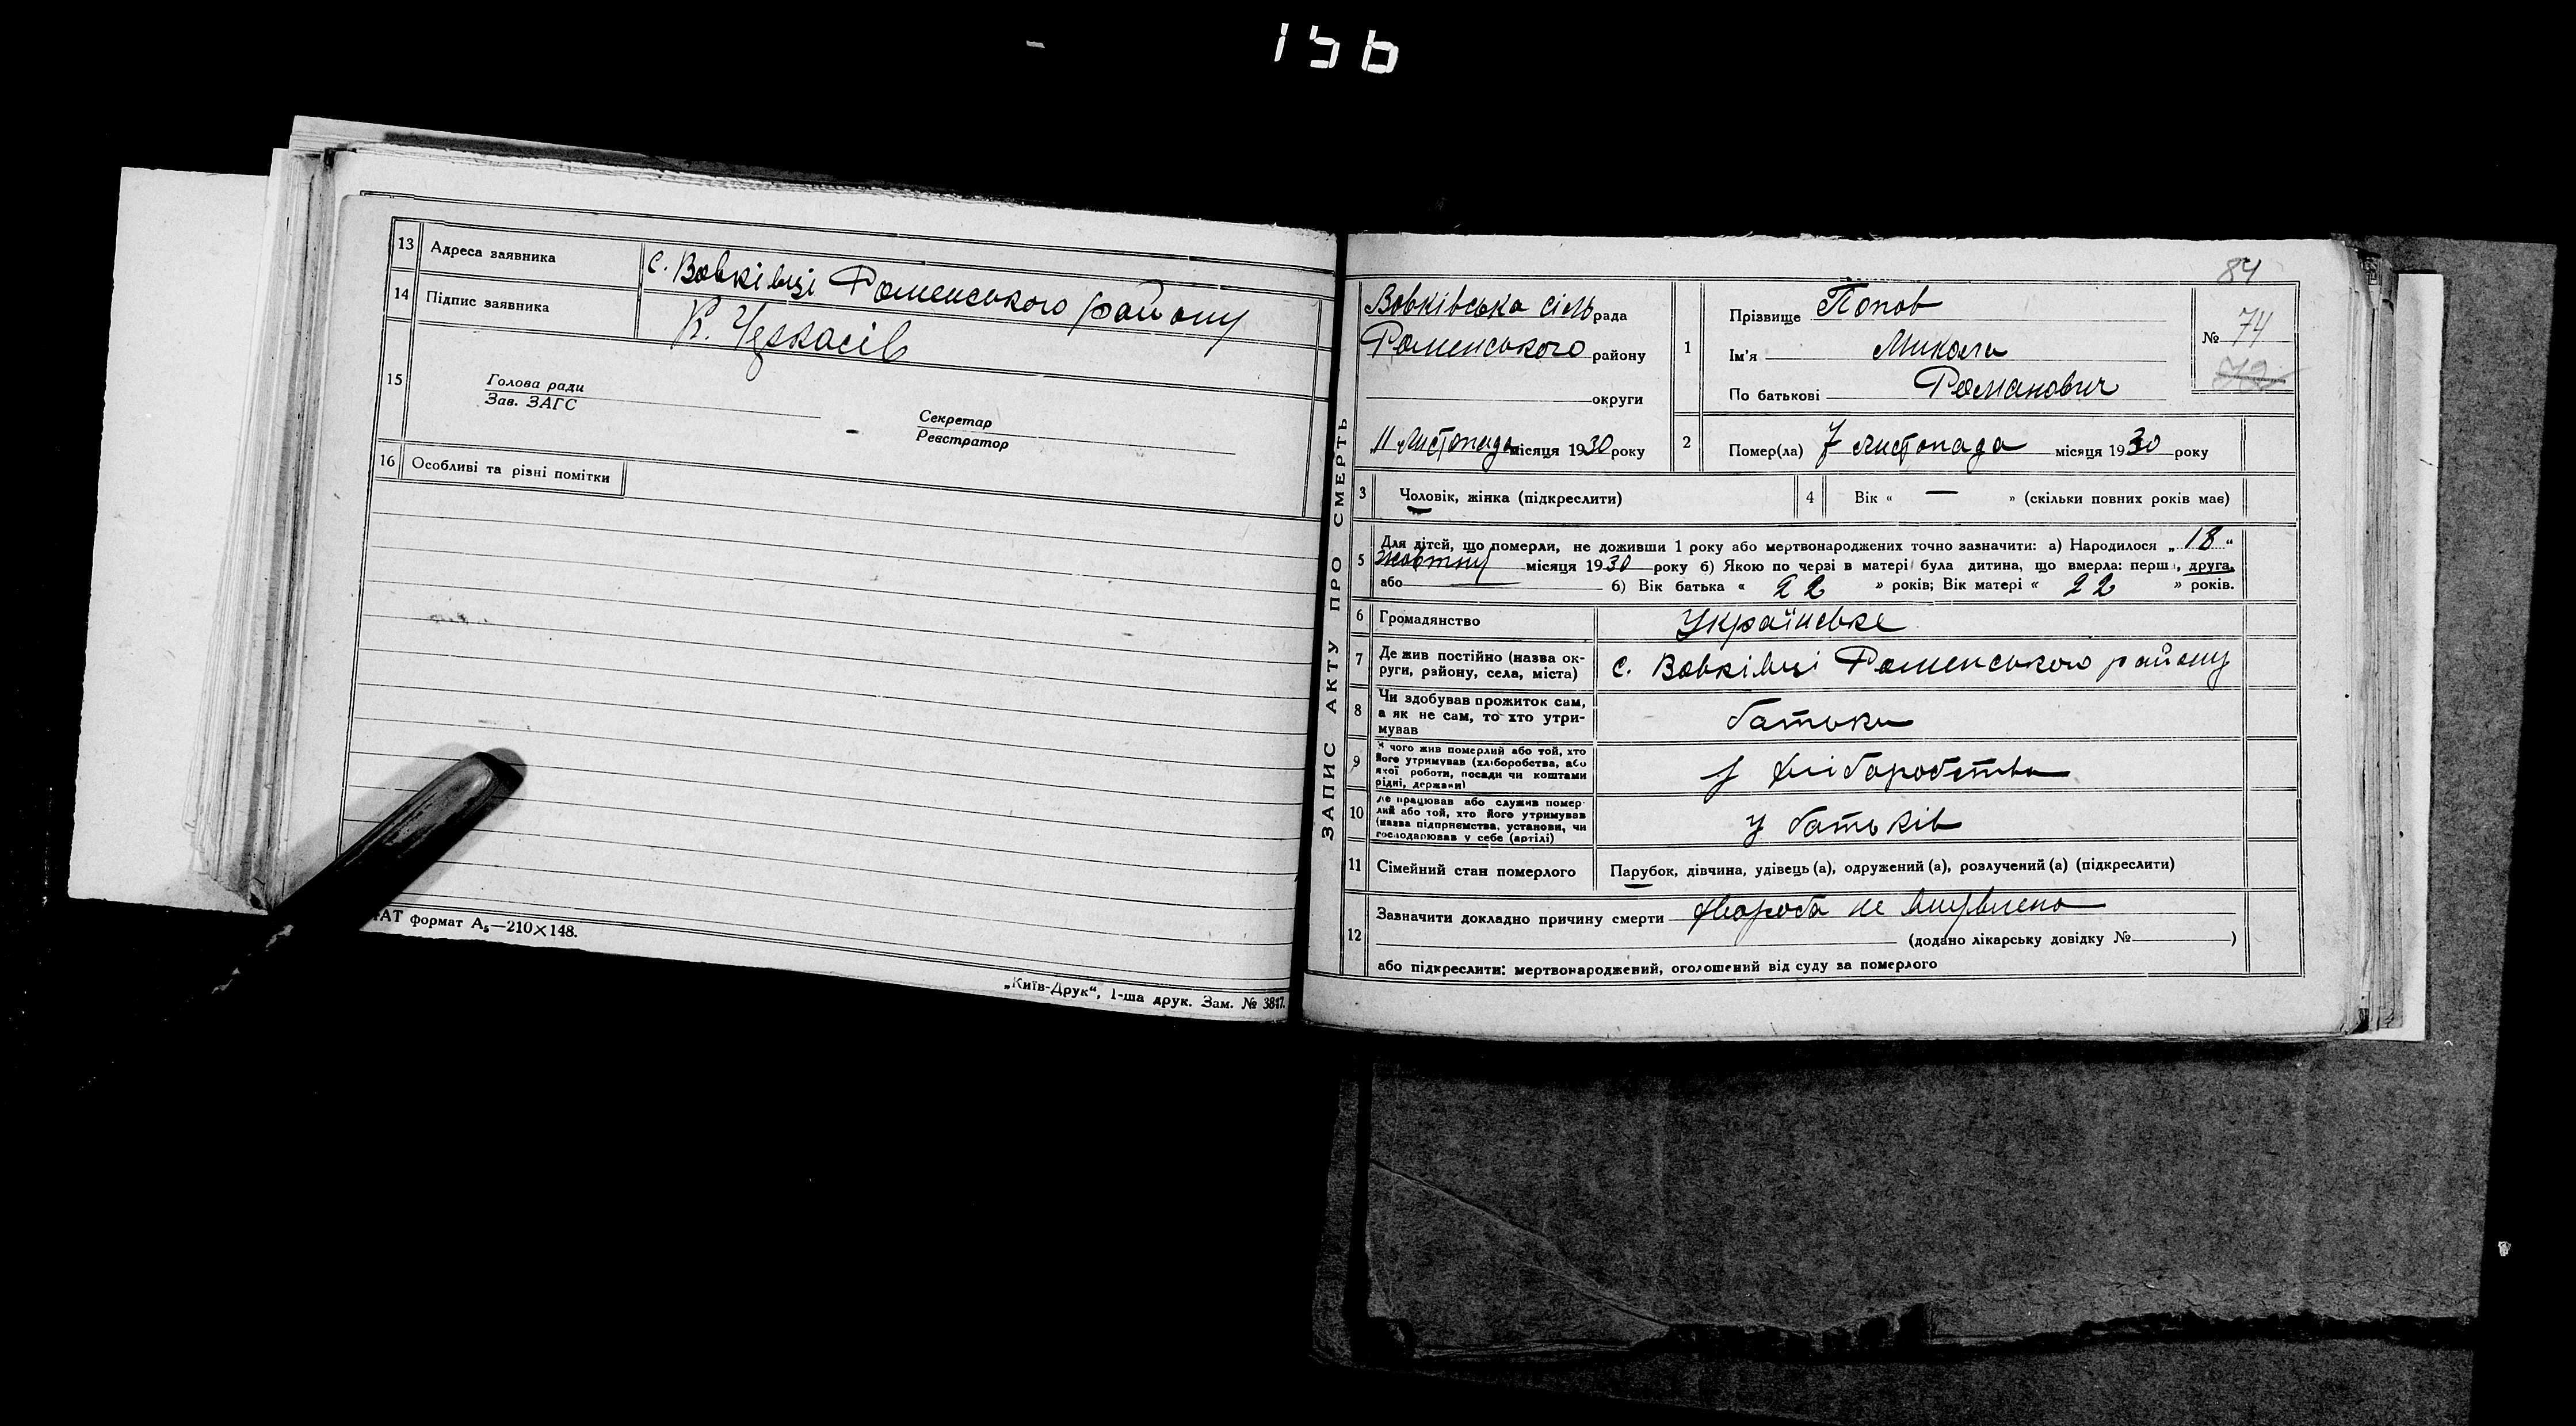 156
13 Адреса заявника с. Вовківці Роменського району
14 Підпис заявника К. Черкасів
15 Голова ради
Зав. ЗАГС
Секретар
Реєстратор
16 Особливі та різні помітки
формат А₅—210×148.
„Київ-Друк“, 1-ша друк. Зам. № 3817.
ЗАПИС АКТУ ПРО СМЕРТЬ
84
Вовківська сільрада
Роменського району
округи
11 листопада місяця 1930 року
1 Прізвище Попов
Ім'я Микола
По батькові Романович
№ 74
72
2 Помер(ла) 7 листопада місяця 1930 року
3 Чоловік, жінка (підкреслити)
4 Вік « — » (скільки повних років має)
5 Для дітей, що померли, не доживши 1 року або мертвонароджених точно зазначити: а) Народилося „18“
жовтня місяця 1930 року б) Якою по черзі в матері була дитина, що вмерла: перша, друга,
або б) Вік батька « 22 » років; Вік матері « 22 » років.
6 Громадянство Українське
7 Де жив постійно (назва ок-
руги, району, села, міста) с. Вовківці Роменського району
8 Чи здобував прожиток сам,
а як не сам, то хто утри-
мував батьки
9 З чого жив померлий або той, хто
його утримував (хліборобства, або
якої роботи, посади чи коштами
рідні, держави) з хліборобства
10 Де працював або служив помер-
лий або той, хто його утримував
(назва підприємства, установи, чи
господарював у себе (артілі) у батьків
11 Сімейний стан померлого Парубок, дівчина, удівець (а), одружений (а), розлучений (а) (підкреслити)
12 Зазначити докладно причину смерти хвороба не виявлена
(додано лікарську довідку № )
або підкреслити: мертвонароджений, оголошений від суду за померлого